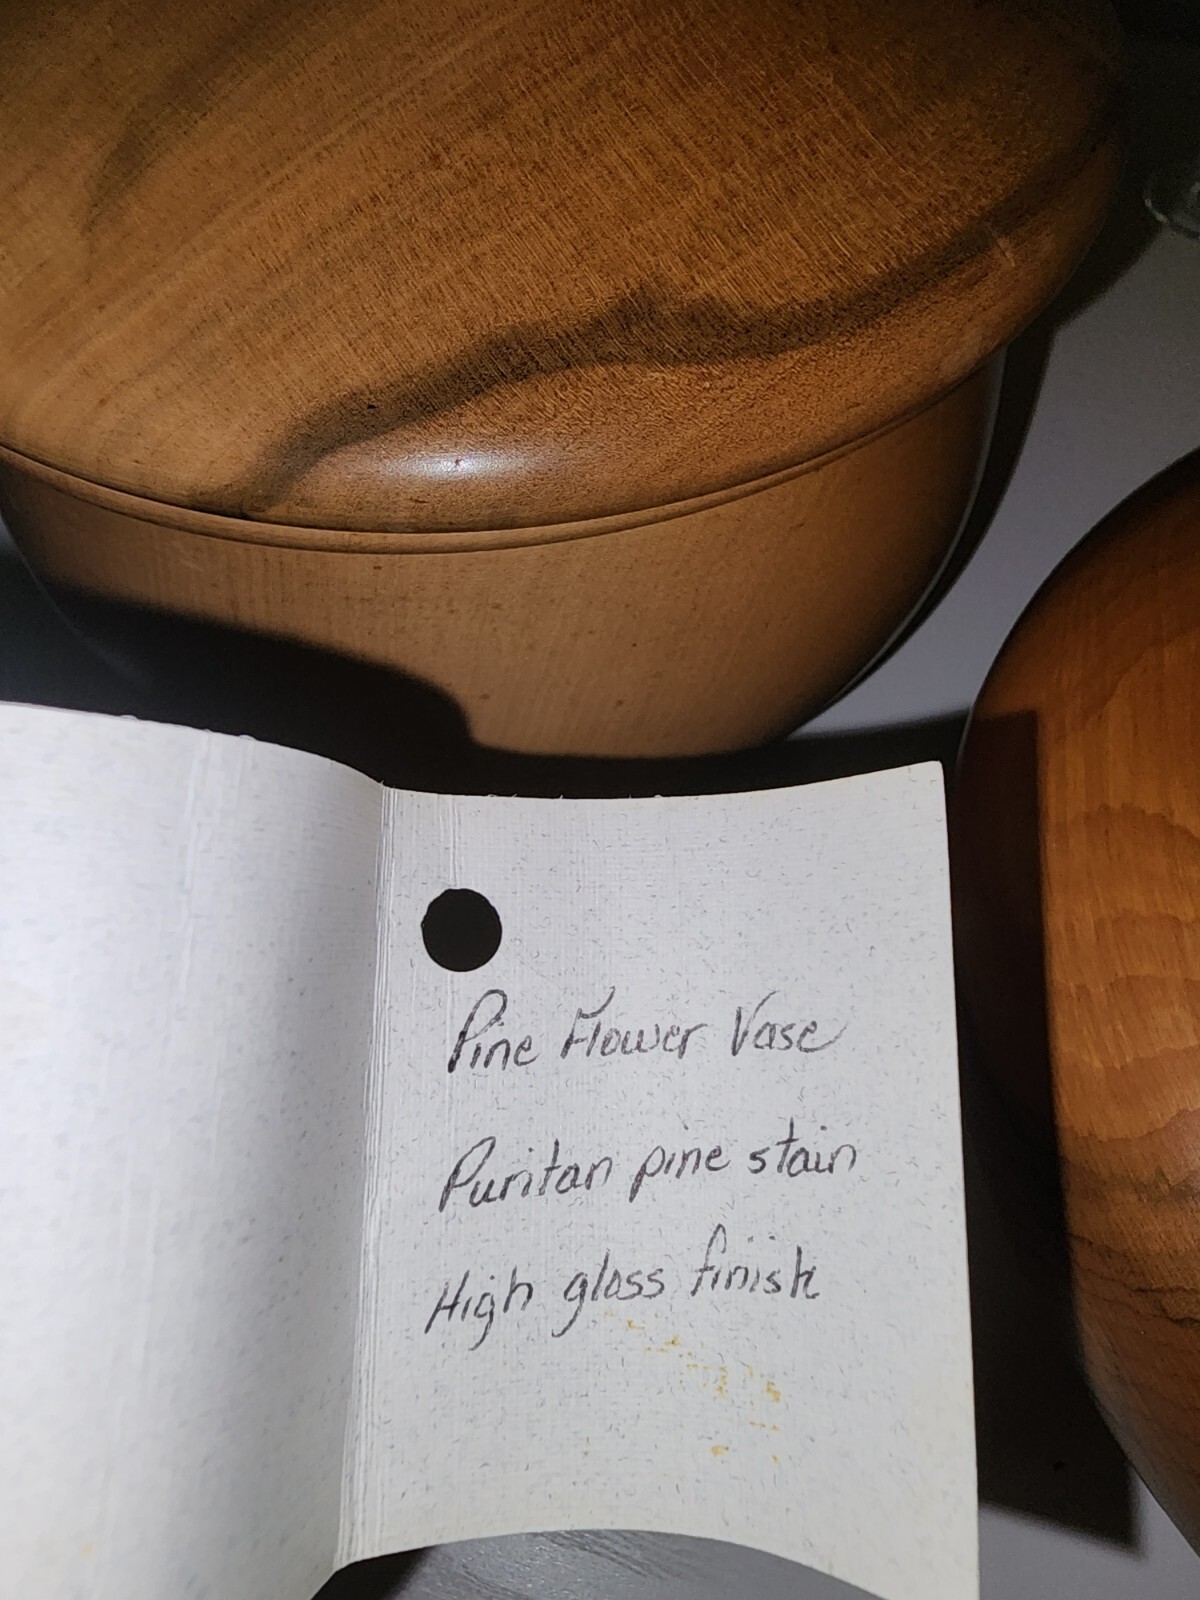 Pine Flower Vase
Puritan pine stain
High gloss finish